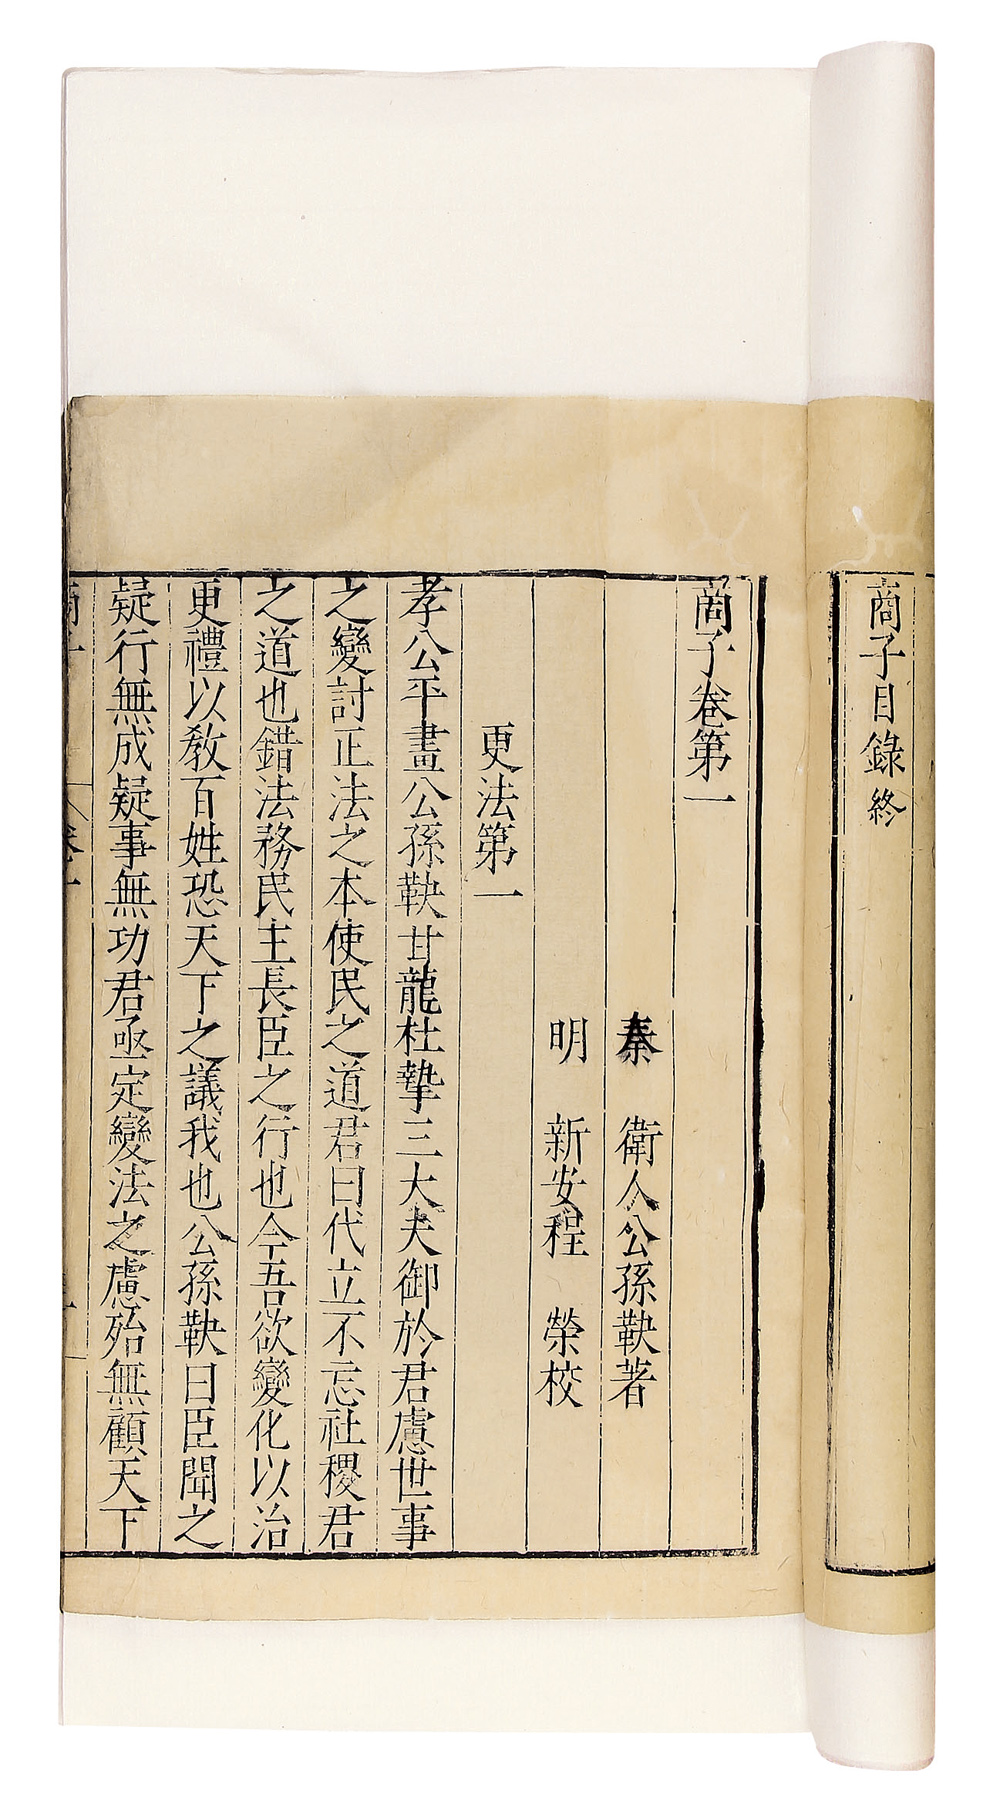 商子目錄終
商子卷第一
秦　衛人公孫鞅著
明　新安程　榮校
更法第一
孝公平畫公孫鞅甘龍杜摯三大夫御於君慮世事
之變討正法之本使民之道君曰代立不忘社稷君
之道也錯法務民主長臣之行也今吾欲變化以治
更禮以教百姓恐天下之議我也公孫鞅曰臣聞之
疑行無成疑事無功君亟定變法之慮殆無顧天下
商子
卷一